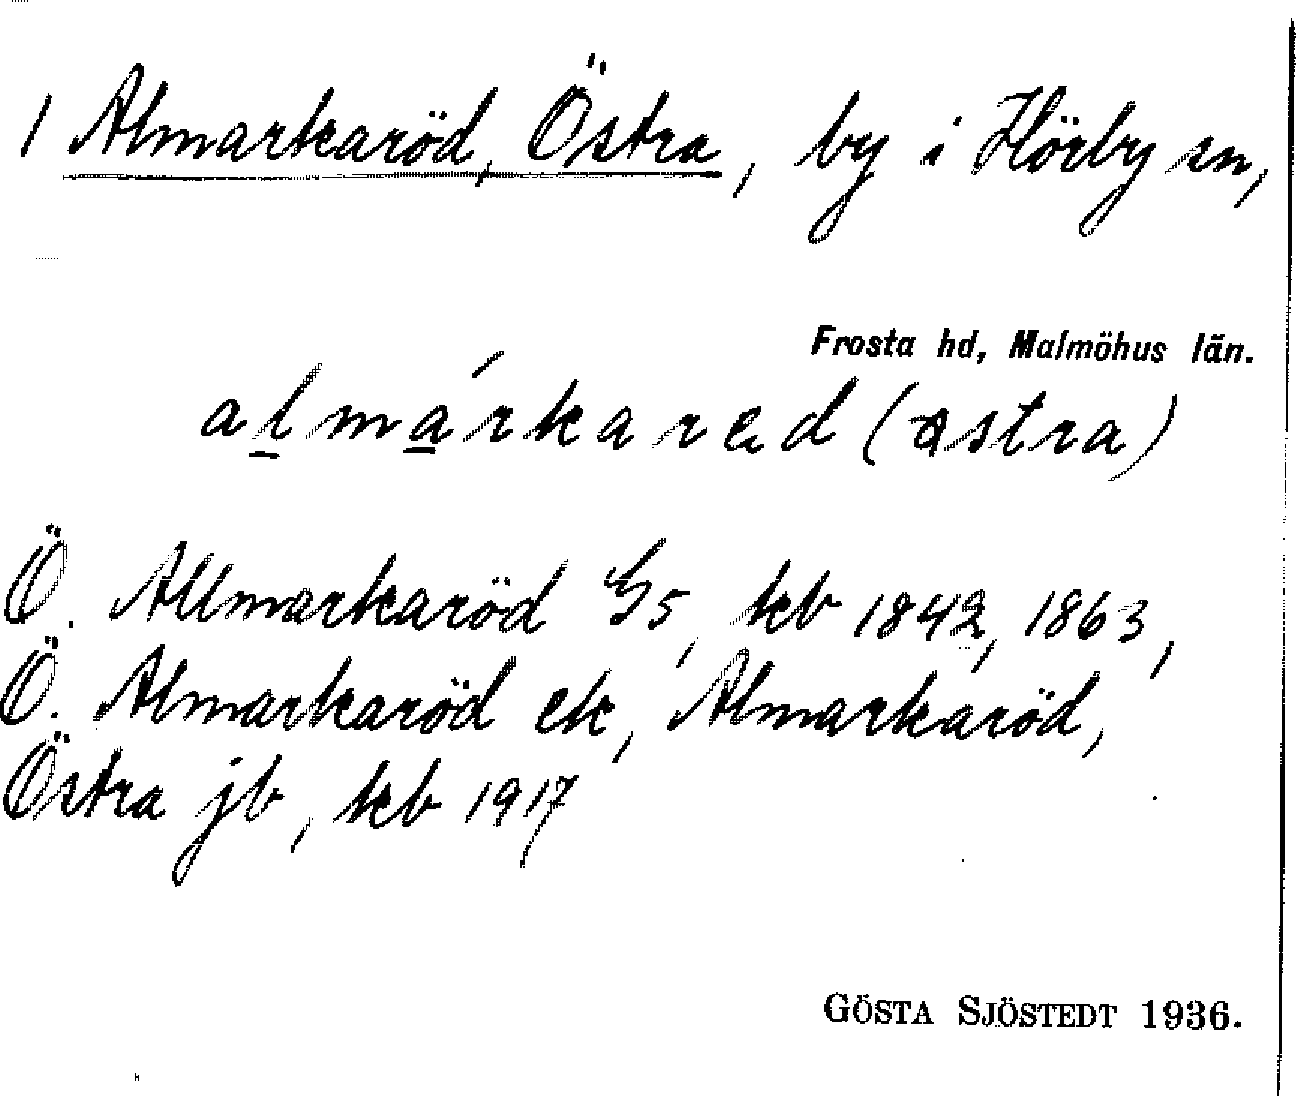 1 Almarkaröd, Östra, by i Hörby sn,
Frosta hd, Malmöhus län.
almárkared (östra)
Ö. Allmarkaröd, kb 1842, 1863,
Ö. Almarkaröd ek, Almarkaröd,
Östra jb, kb 1917
GÖSTA SJÖSTEDT 1936.